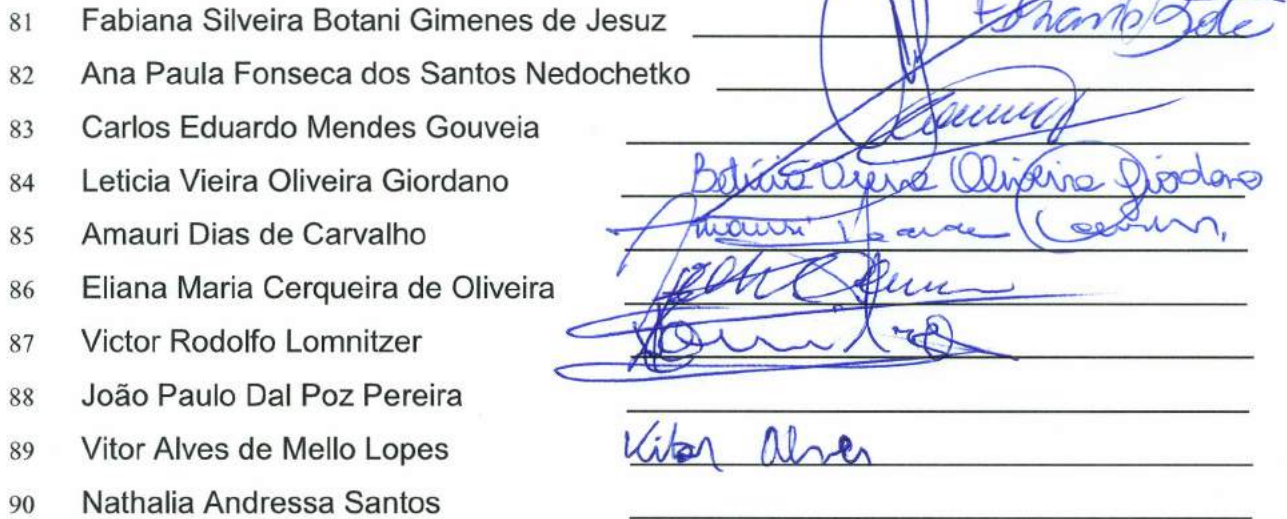 81 Fabiana Silveira Botani Gimenes de Jesuz
82 Ana Paula Fonseca dos Santos Nedochetko
83 Carlos Eduardo Mendes Gouveia
84 Leticia Vieira Oliveira Giordano Oliveira Giordano
85 Amauri Dias de Carvalho Amauri
86 Eliana Maria Cerqueira de Oliveira
87 Victor Rodolfo Lomnitzer
88 João Paulo Dal Poz Pereira
89 Vitor Alves de Mello Lopes Vitor Alves
90 Nathalia Andressa Santos